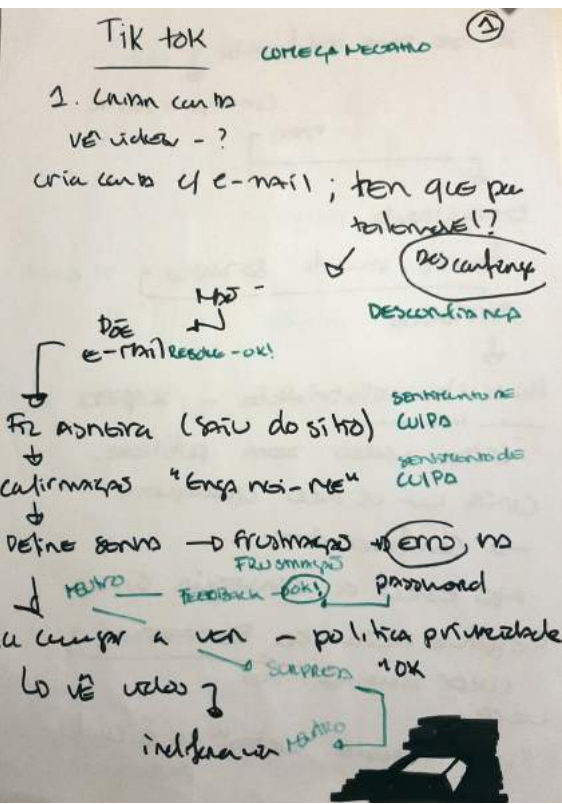 Tik tok
COMEÇA NEGATIVO
1
1. Criar conta
VÊ vídeos - ?
cria conta c/ e-mail ; tem que por
telemóvel!?
Desconfiança
DESCONFIANÇA
NÃO
PÕE
e-mail RESOLVE - OK!
Fiz ASNEIRA (saiu do sítio)
SENTIMENTO DE
CULPA
confirmação "Enganei-me"
SENTIMENTO DE
CULPA
DEFINE SENHA → FRUSTRAÇÃO → erro na
password
FRUSTRAÇÃO
NEUTRO — FEEDBACK - OK!
a ver - política privacidade
"OK
SURPRESA
vê vídeos
indiferença
NEUTRO